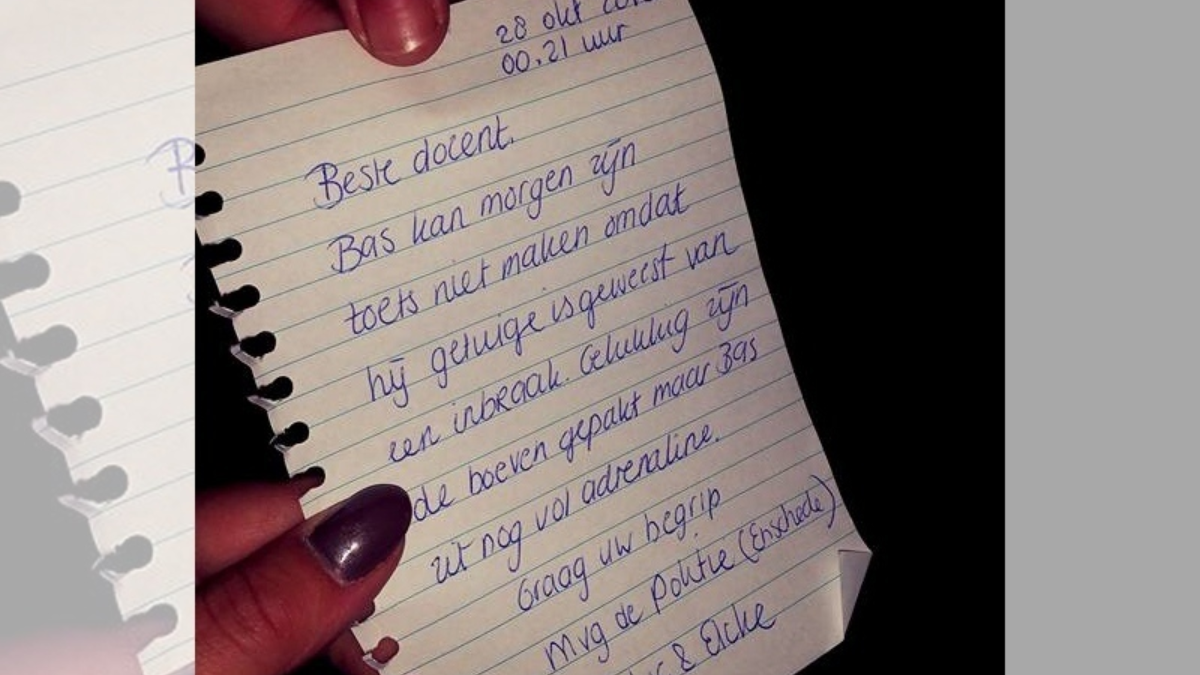 28 okt
00.21 uur
Beste docent.
Bas kan morgen zijn
toets niet maken omdat
hij getuige is geweest van
een inbraak. Gelukkig zijn
de boeven gepakt maar Bas
zit nog vol adrenaline.
Graag uw begrip
Mvg de Politie (Enschede)
& Elcke